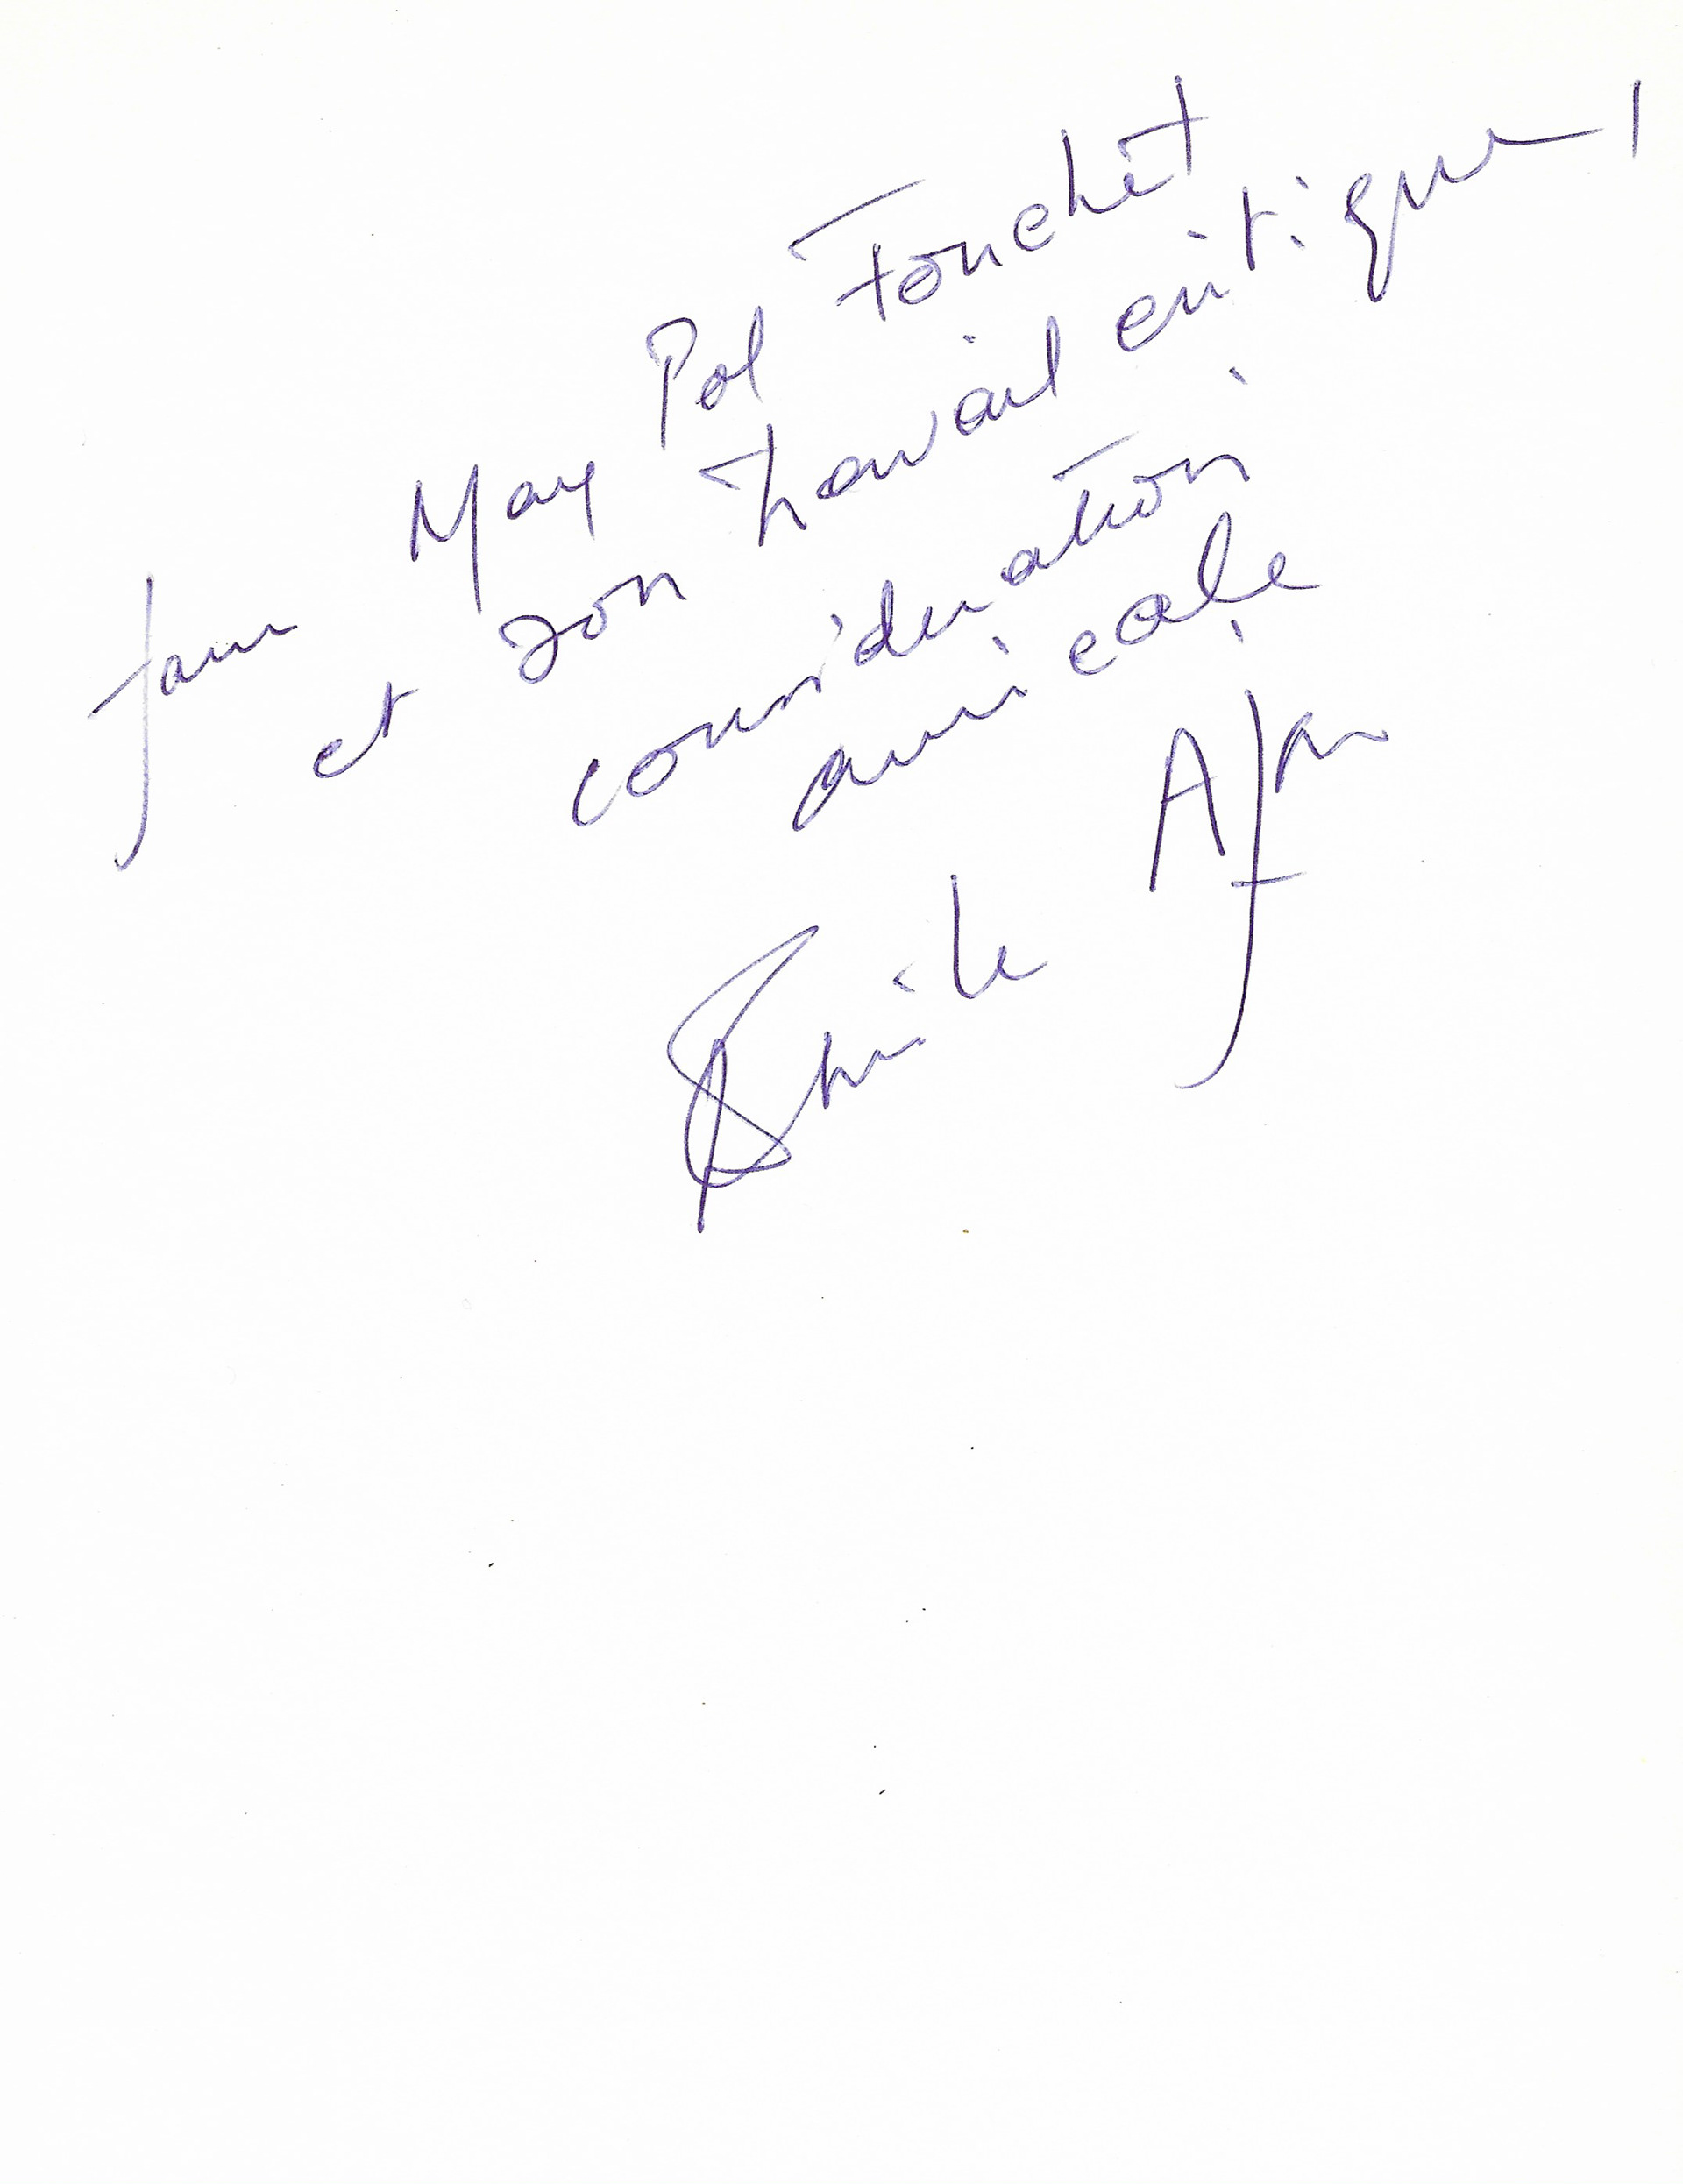 pour Max Pol Fouchet
et son travail critique,
considération
amicale
Émile Ajar